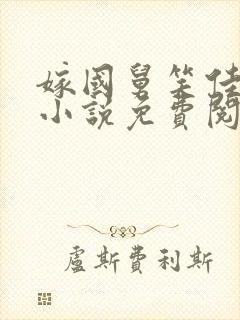 嫁國舅笑佳
小說免費閱
盧斯費利斯